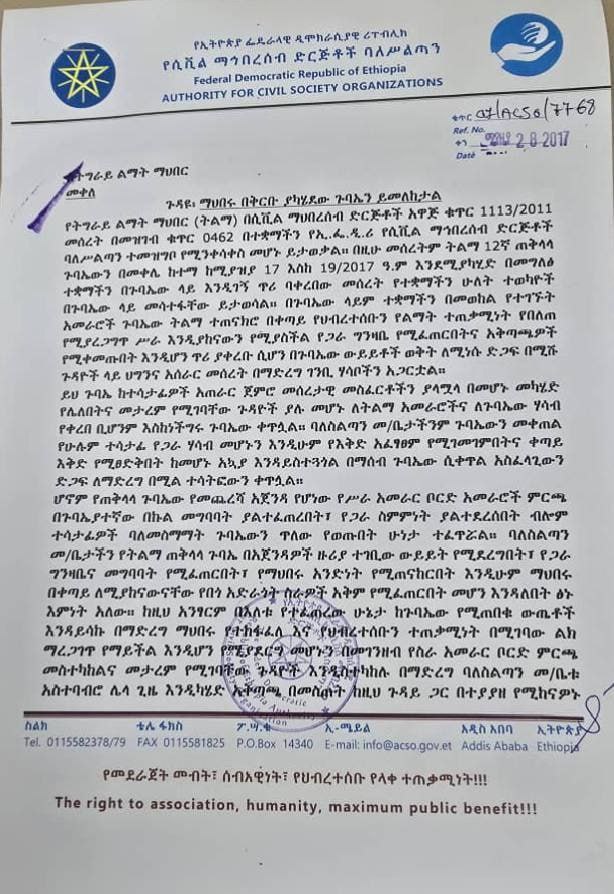 የኢትዮጵያ ፌዴራላዊ ዲሞክራሲያዊ ሪፐብሊክ
የሲቪል ማኅበረሰብ ድርጅቶች ባለሥልጣን
Federal Democratic Republic of Ethiopia
AUTHORITY FOR CIVIL SOCIETY ORGANIZATIONS
ቁጥር 07/ACSO/7768
Ref. No.
ቀን 28 2017
Date
ለትግራይ ልማት ማህበር
መቀለ
ጉዳዩ፡ ማህበሩ በቅርቡ ያካሄደው ጉባኤን ይመለከታል
የትግራይ ልማት ማህበር (ትልማ) በሲቪል ማህበረሰብ ድርጅቶች አዋጅ ቁጥር 1113/2011
መሰረት በመዝገብ ቁጥር 0462 በተቋማችን የኢ.ፌ.ዲ.ሪ የሲቪል ማኅበረሰብ ድርጅቶች
ባለሥልጣን ተመዝግቦ የሚንቀሳቀስ መሆኑ ይታወቃል። በዚሁ መሰረትም ትልማ 12ኛ ጠቅላላ
ጉባኤውን በመቀሌ ከተማ ከሚያዝያ 17 እስከ 19/2017 ዓ.ም እንደሚያካሂድ በመግለፅ
ተቋማችን በጉባኤው ላይ እንዲገኝ ጥሪ ባቀረበው መሰረት የተቋማችን ሁለት ተወካዮች
በጉባኤው ላይ መሳተፋቸው ይታወሳል። በጉባኤው ላይም ተቋማችን በመወከል የተገኙት
አመራሮች ጉባኤው ትልማ ተጠናክሮ በቀጣይ የህብረተሰቡን የልማት ተጠቃሚነት የበለጠ
የሚያረጋግጥ ሥራ እንዲያከናውን የሚያስችል የጋራ ግንዛቤ የሚፈጠርበትና አቅጣጫዎች
የሚቀመጡበት እንዲሆን ጥሪ ያቀረቡ ሲሆን በጉባኤው ውይይቶች ወቅት ለሚነሱ ድጋፍ በሚሹ
ጉዳዮች ላይ ህግንና አሰራር መሰረት በማድረግ ገንቢ ሃሳቦችን አጋርቷል።
ይህ ጉባኤ ከተሳታፊዎች አጠራር ጀምሮ መሰረታዊ መስፈርቶችን ያላሟላ በመሆኑ መካሄድ
የሌለበትና መታረም የሚገባቸው ጉዳዮች ያሉ መሆኑ ለትልማ አመራሮችና ለጉባኤው ሃሳብ
የቀረበ ቢሆንም እስከነችግሩ ጉባኤው ቀጥሏል። ባለስልጣን መ/ቤታችንም ጉባኤውን መቀጠል
የሁሉም ተሳታፊ የጋራ ሃሳብ መሆኑን እንዲሁም የእቅድ አፈፃፀም የሚገመገምበትና ቀጣይ
እቅድ የሚፀድቅበት ከመሆኑ አኳያ እንዳይስተጓጎል በማሰብ ጉባኤው ሲቀጥል አስፈላጊውን
ድጋፍ ለማድረግ በሚል ተሳትፎውን ቀጥሏል።
ሆኖም የጠቅላላ ጉባኤው የመጨረሻ አጀንዳ የሆነው የሥራ አመራር ቦርድ አመራሮች ምርጫ
በጉባኤያተኛው በኩል መግባባት ያልተፈጠረበት፣ የጋራ ስምምነት ያልተደረሰበት ብሎም
ተሳታፊዎች ባለመስማማት ጉባኤውን ጥለው የወጡበት ሁነታ ተፈጥሯል። ባለስልጣን
መ/ቤታችን የትልማ ጠቅላላ ጉባኤ በአጀንዳዎች ዙሪያ ተገቢው ውይይት የሚደረግበት፣ የጋራ
ግንዛቤና መግባባት የሚፈጠርበት፣ የማህበሩ አንድነት የሚጠናከርበት እንዲሁም ማህበሩ
በቀጣይ ለሚያከናውናቸው የበጎ አድራጎት ስራዎች አቅም የሚፈጠርበት መሆን እንዳለበት ፅኑ
እምነት አለው። ከዚህ አንፃርም በእለቱ የተፈጠረው ሁኔታ ከጉባኤው የሚጠበቁ ውጤቶች
እንዳይሳኩ በማድረግ ማህበሩ የተከፋፈለ እና የህብረተሰቡን ተጠቃሚነት በሚገባው ልክ
ማረጋገጥ የማይችል እንዲሆን የሚያደርግ መሆኑን በመገንዘብ የስራ አመራር ቦርድ ምርጫ
መስተካከልና መታረም የሚገባቸው ጉዳዮች እንዲስተካከሉ በማድረግ ባለስልጣን መ/ቤቱ
አስተባብሮ ሌላ ጊዜ እንዲካሄድ አቅጣጫ በመስጠት ከዚህ ጉዳይ ጋር በተያያዘ የሚከናዎኑ
ስልክ ቴሌ ፋክስ ፖ.ሣ.ቁ ኢ-ሜይል አዲስ አበባ ኢትዮጵያ
Tel. 0115582378/79 FAX 0115581825 P.O.Box 14340 E-mail: info@acso.gov.et Addis Ababa Ethiopia
የመደራጀት መብት፣ ሰብአዊነት፣ የህብረተሰቡ የላቀ ተጠቃሚነት!!!
The right to association, humanity, maximum public benefit!!!